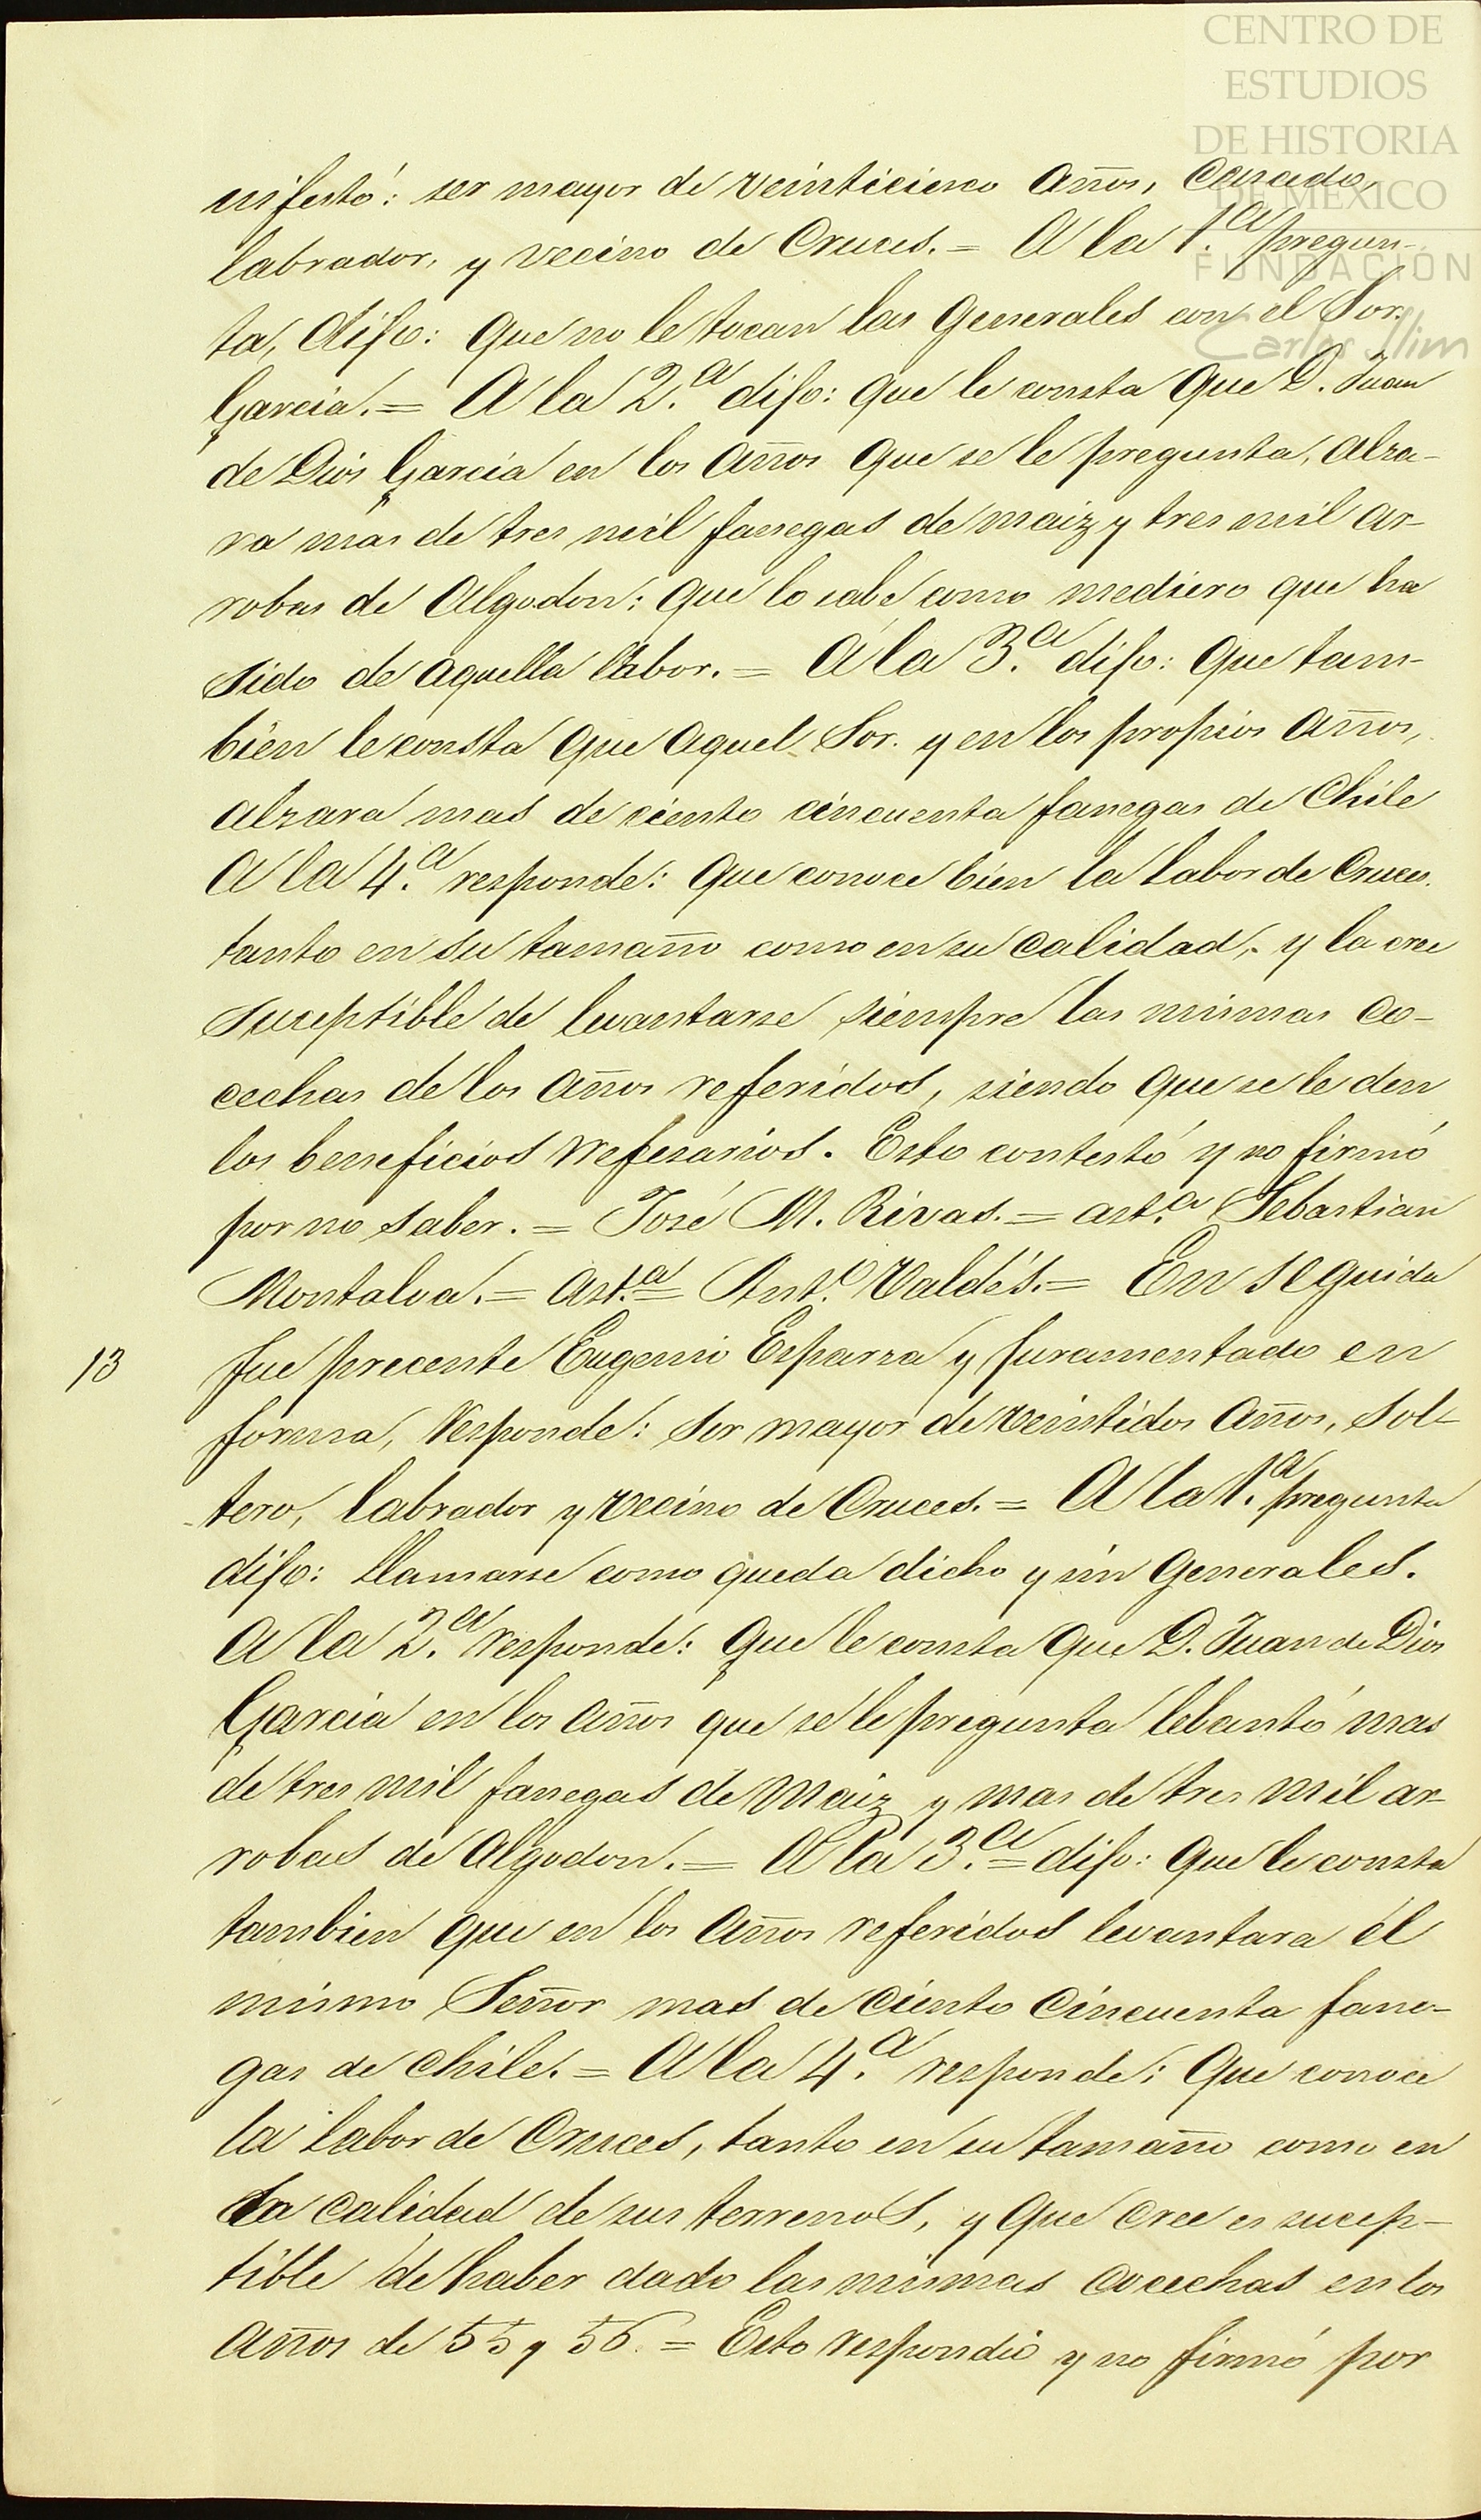 CENTRO DE
ESTUDIOS
DE HISTORIA
DE MÉXICO
FUNDACIÓN
Carlos Slim
nifestó: ser mayor de veinticinco años, casado,
labrador, y vecino de Cruces. = A la 1.ª pregun-
ta, dijo: que no le tocan las generales con el Sor.
García. = A la 2.ª dijo: que le consta que D. Juan
de Dios García en los años que se le pregunta, alza-
ra mas de tres mil fanegas de maiz y tres mil ar-
robas de Algodon: que lo sabe como mediero que ha
sido de aquella labor. = A la 3.ª dijo: que tam-
bien le consta que aquel Sor. y en los propios años,
alzara mas de ciento cincuenta fanegas de Chile
A la 4.ª responde: que conoce bien la labor de Cruces.
tanto en su tamaño como en su calidad, y la cree
suceptible de levantarse siempre las mismas co-
cechas de los años referidos, siendo que se le den
los beneficios nesesarios. Esto contestó y no firmó
por no saber. = José M. Rivas. = ast.ª Sebastian
Montalva. = Ast.ª = Ant.º Valdés. = En seguida
13 fue precente Eugenio Esparza y juramentado en
forma, responde: ser mayor de veintidos años, sol-
tero, labrador y vecino de Cruces. = A la 1.ª pregunta
dijo: llamarse como queda dicho y sin generales.
A la 2.ª responde: que le consta que D. Juan de Dios
García en los años que se le pregunta lebantó mas
de tres mil fanegas de maiz y mas de tres mil ar-
robas de Algodon. = A la 3.ª = dijo: que le consta
tambien que en los años referidos levantara él
mismo Señor mas de ciento cincuenta fane-
gas de chile. = A la 4.ª responde: que conoce
la labor de Cruces, tanto en su tamaño como en
la calidad de sus terrenos, y que cree es sucep-
tible de haber dado las mismas cocechas en los
años de 55 y 56. = Esto respondió y no firmó por